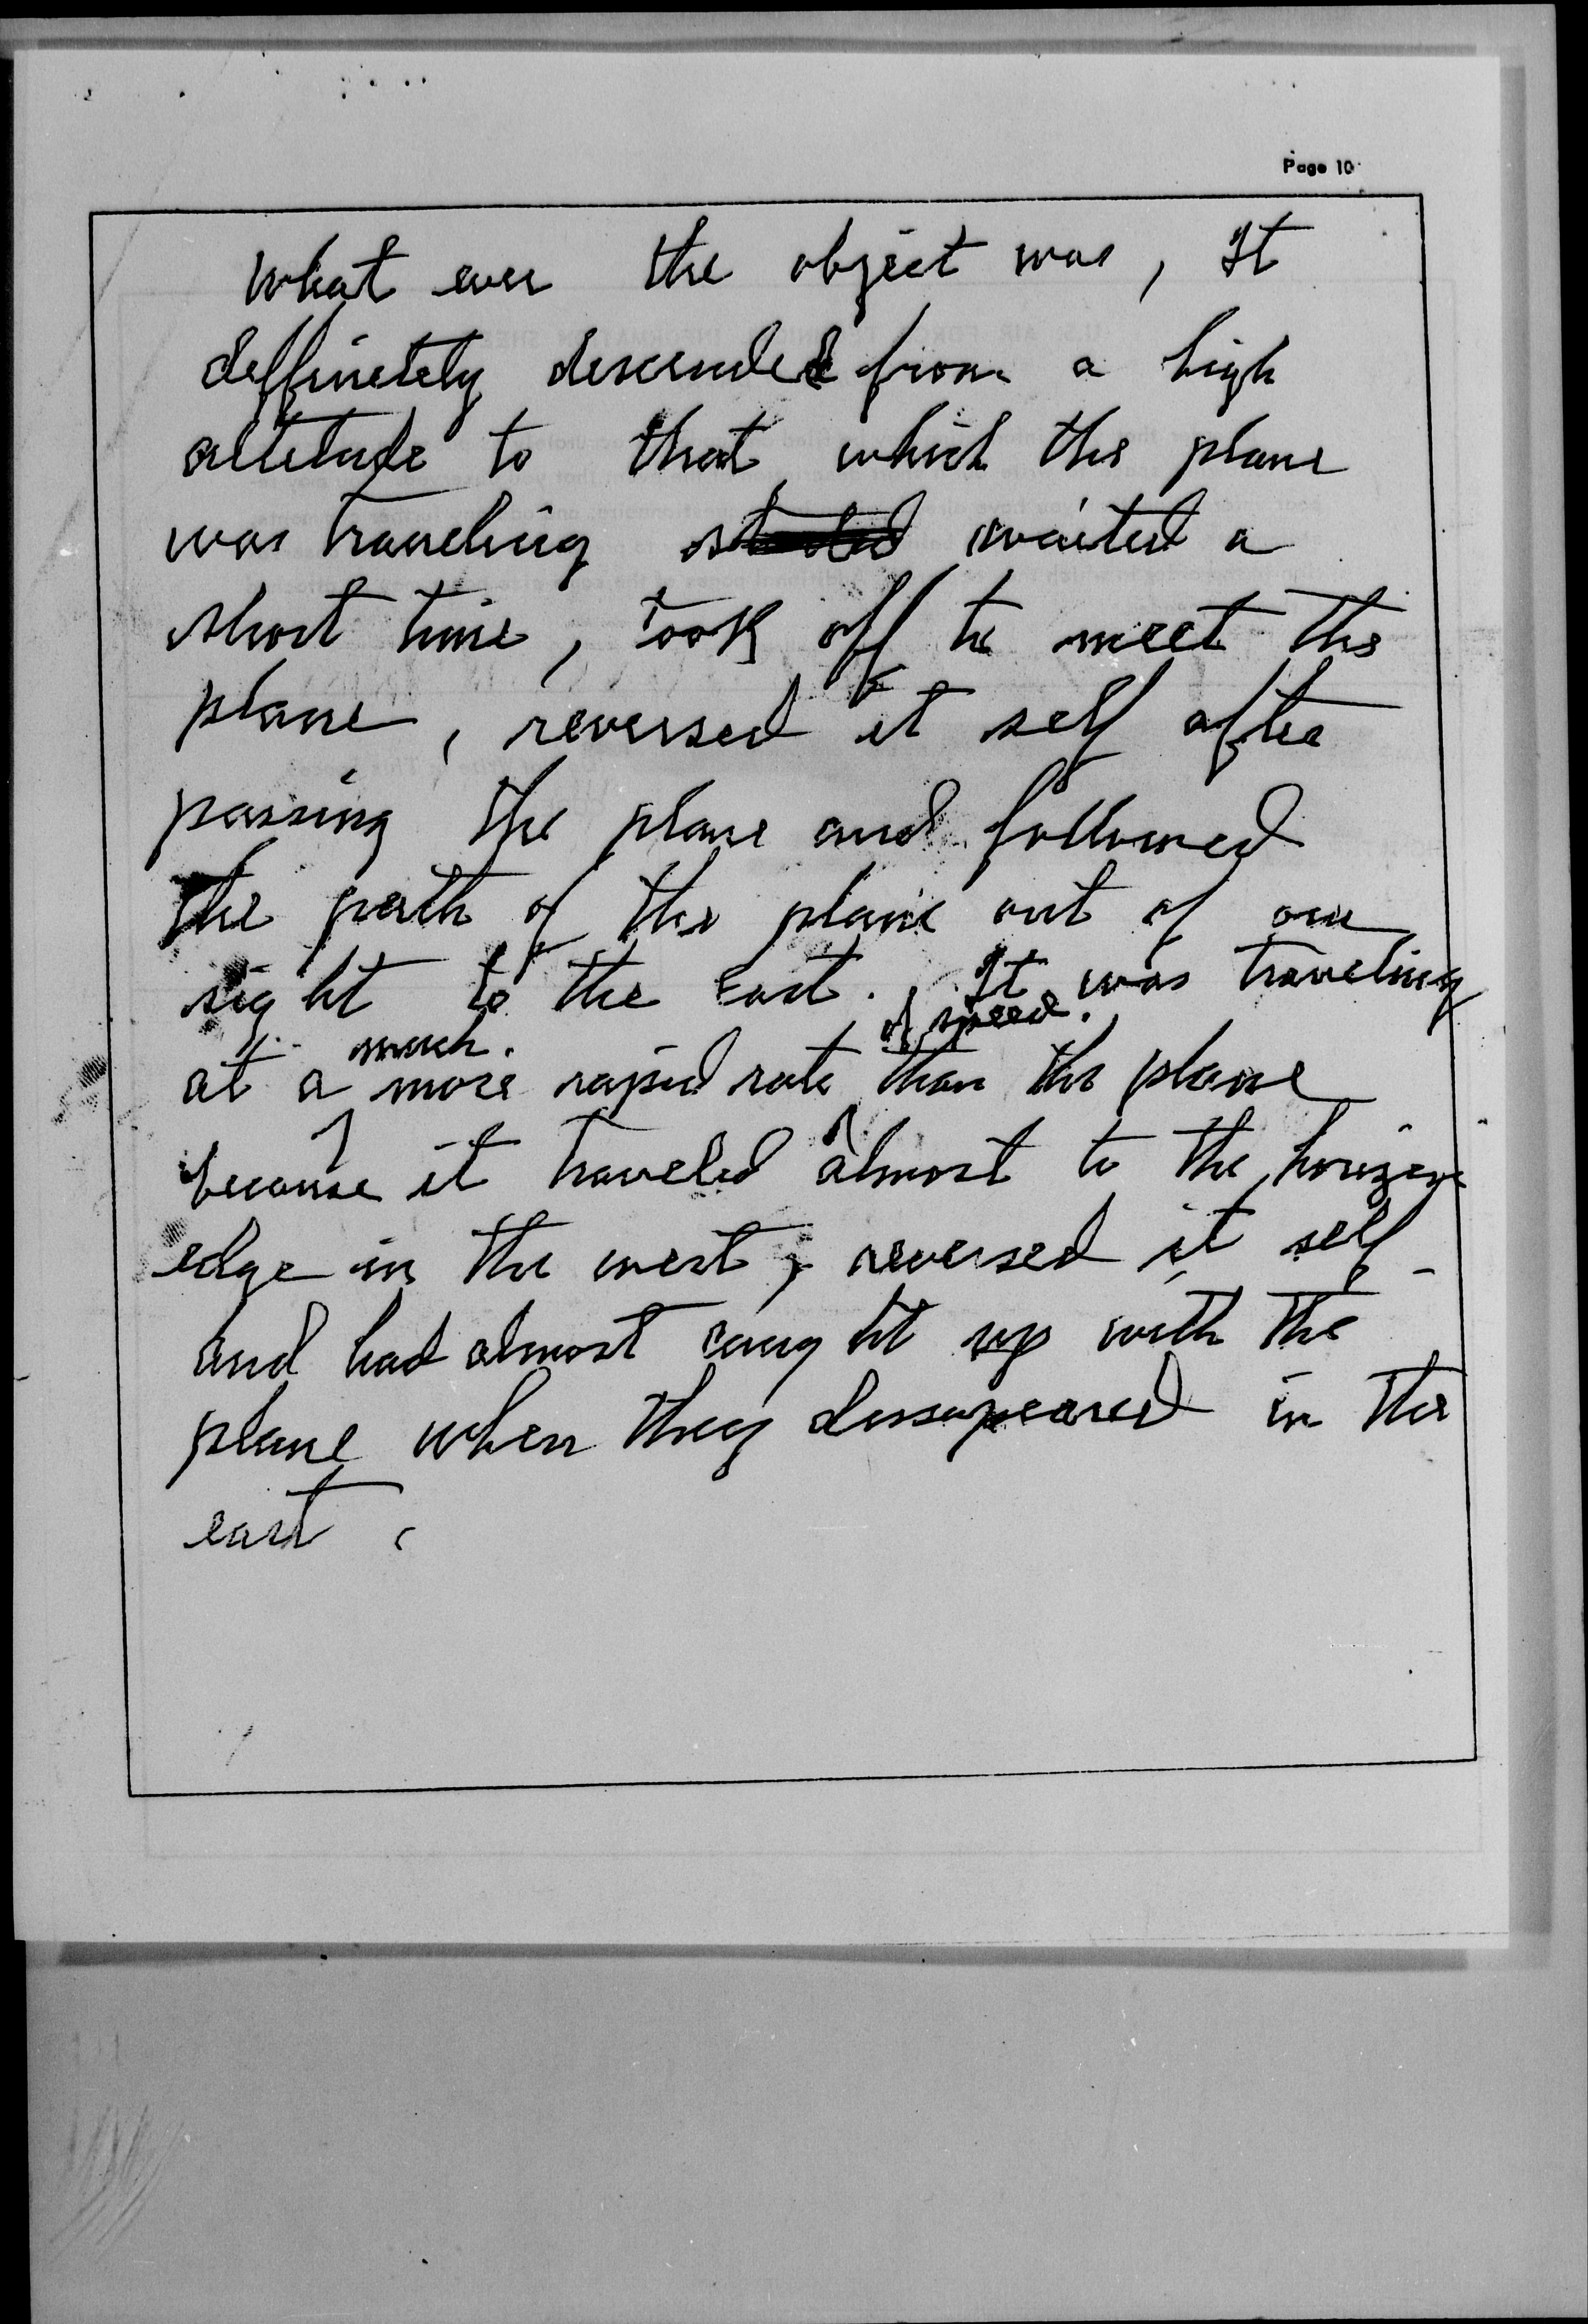 Page 10
What ever the object was, It
deffinetely descended from a high
altetude to that which the plane
was traveling started waited a
short time, took off to meet the
plane, reversed it self after
passing the plane and followed
the path of the plane out of our
sight to the East. It was traveling
at a much more rapid rate of speed than the plane
because it traveled almost to the horizon
edge in the west, reversed it self
and had almost caught up with the
plane when they dissapeared in the
east.